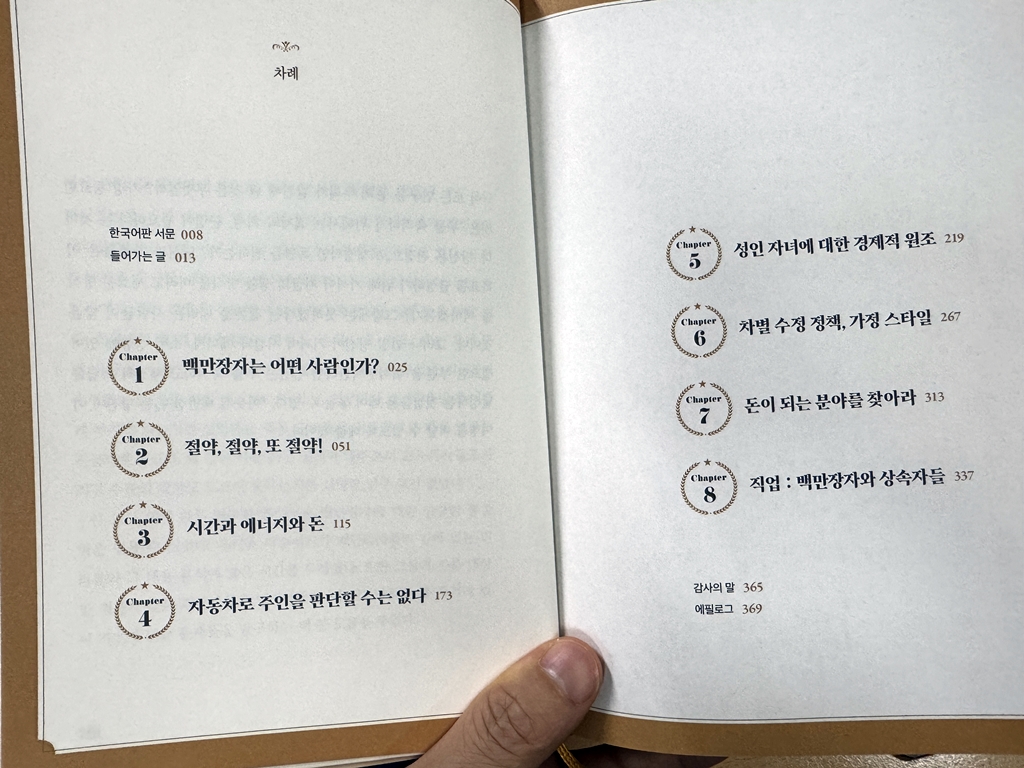 차례
한국어판 서문 008
들어가는 글 013
Chapter 1 백만장자는 어떤 사람인가? 025
Chapter 2 절약, 절약, 또 절약! 051
Chapter 3 시간과 에너지와 돈 115
Chapter 4 자동차로 주인을 판단할 수는 없다 173
Chapter 5 성인 자녀에 대한 경제적 원조 219
Chapter 6 차별 수정 정책, 가정 스타일 267
Chapter 7 돈이 되는 분야를 찾아라 313
Chapter 8 직업 : 백만장자와 상속자들 337
감사의 말 365
에필로그 369